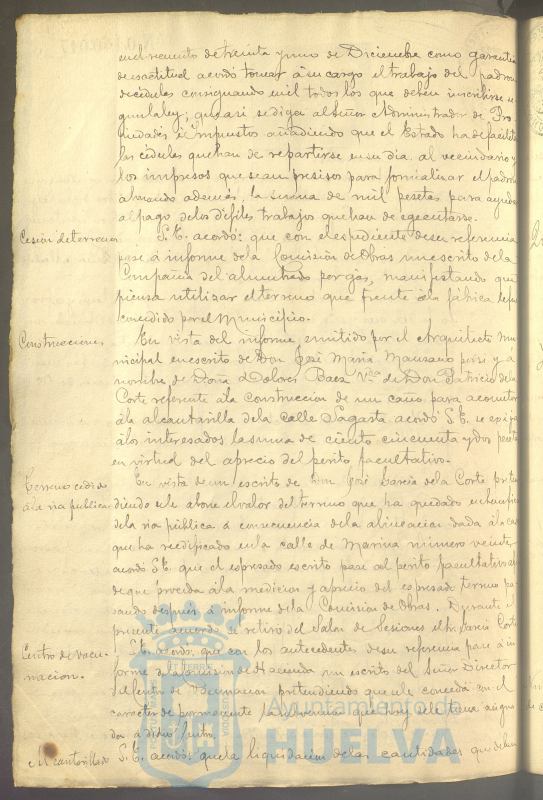 en el recuento de treinta y uno de Diciembre como garantia
de esactitud acordó tomar á su cargo el trabajo del padron
de cédulas consignando en él todos los que deben inscribirse
que asi se diga al Señor Administrador de Pro
piedades é Impuestos añadiendo que el Estado ha de facilitar
las cédulas que han de repartirse en su dia al vecindario y
los impresos que sean presisos para formalizar el padron
abonando además la suma de mil pesetas para ayuda
al pago de los dificiles trabajos que han de egecutarse.
Cesion de terreno
S.E. acordó: que con el espediente de su referencia
pase á informe de la Comision de Obras un escrito de la
Compañia del alumbrado por gas, manifestando que
piensa utilizar el terreno que frente á la fábrica le fué
concedido por el Municipio.
Construcciones
En vista del informe emitido por el Arquitecto Mu
nicipal en escrito de Don José Maria Manzano por si y á
nombre de Doña Dolores Baez V.da de Don Patricio de la
Corte referente á la construccion de un caño para acometer
á la alcantarilla de la calle Sagasta acordó S.E. se exija
á los interesados la suma de ciento cincuenta y dos pesetas
en virtud del aprecio del perito facultativo.
Terreno cedido
á la via publica
En vista de un escrito de Don José Garcia de la Corte preten
diendo se le abone el valor del terreno que ha quedado en beneficio
de la via pública á consecuencia de la alineacion dada á la casa
que ha reedificado en la calle de Marina número veinte
acordó S.E. que el espresado escrito pase al perito facultativo
de que proceda á la medicion y aprecio del espresado terreno pa
sando despues á informe de la Comision de Obras. Durante el
presente acuerdo se retiró del Salon de Sesiones el Sr. Garcia Corte
Centro de vacu-
nacion.
S.E. acordó: que con los antecedentes de su referencia pase á in
forme de la Comision de Hacienda un escrito del Señor Director
del Centro de Vacunacion pretendiendo que se le conceda con el
caracter de permanente la subvencion que hoy se le tiene asigna
da á dicho Centro.
Alcantarillado
S.E. acordó: que la liquidacion de las cantidades que deben
Ayuntamiento de
HUELVA